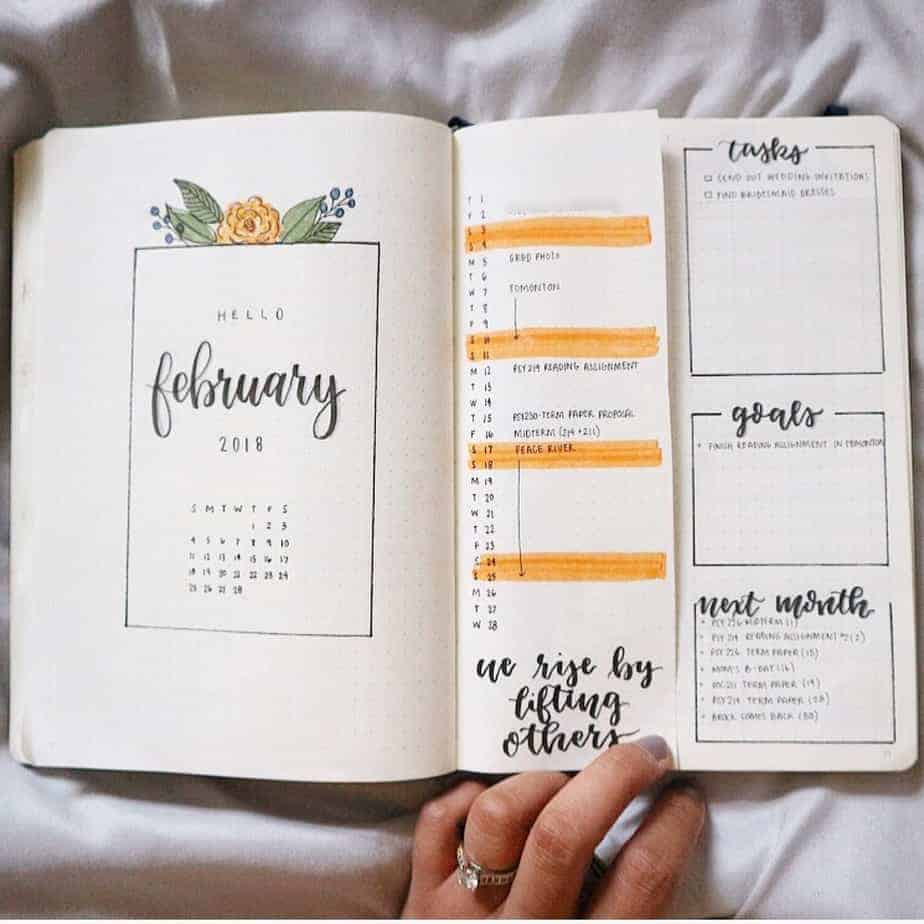 HELLO
february
2018
S M T W T F S
1 2 3
4 5 6 7 8 9 10
11 12 13 14 15 16 17
18 19 20 21 22 23 24
25 26 27 28
T 1
F 2
S 3
S 4
M 5 GRAD PHOTO
T 6
W 7 EDMONTON
T 8
F 9
S 10
S 11
M 12 PSY219 READING ASSIGNMENT
T 13
W 14
T 15 PSY230-TERM PAPER PROPOSAL
F 16 MIDTERM (214 + 211)
S 17 PEACE RIVER
S 18
M 19
T 20
W 21
T 22
F 23
S 24
S 25
M 26
T 27
W 28
we rise by
lifting
others
tasks
SEND OUT WEDDING INVITATIONS
FIND BRIDESMAID DRESSES
goals
FINISH READING ASSIGNMENT IN EDMONTON
next month
MIDTERM (1)
PSY 219 READING ASSIGNMENT #2 (2)
PSY 226 TERM PAPER (15)
MOM'S B-DAY (16)
TERM PAPER (19)
PSY219 TERM PAPER (28)
BROCK COMES BACK (30)